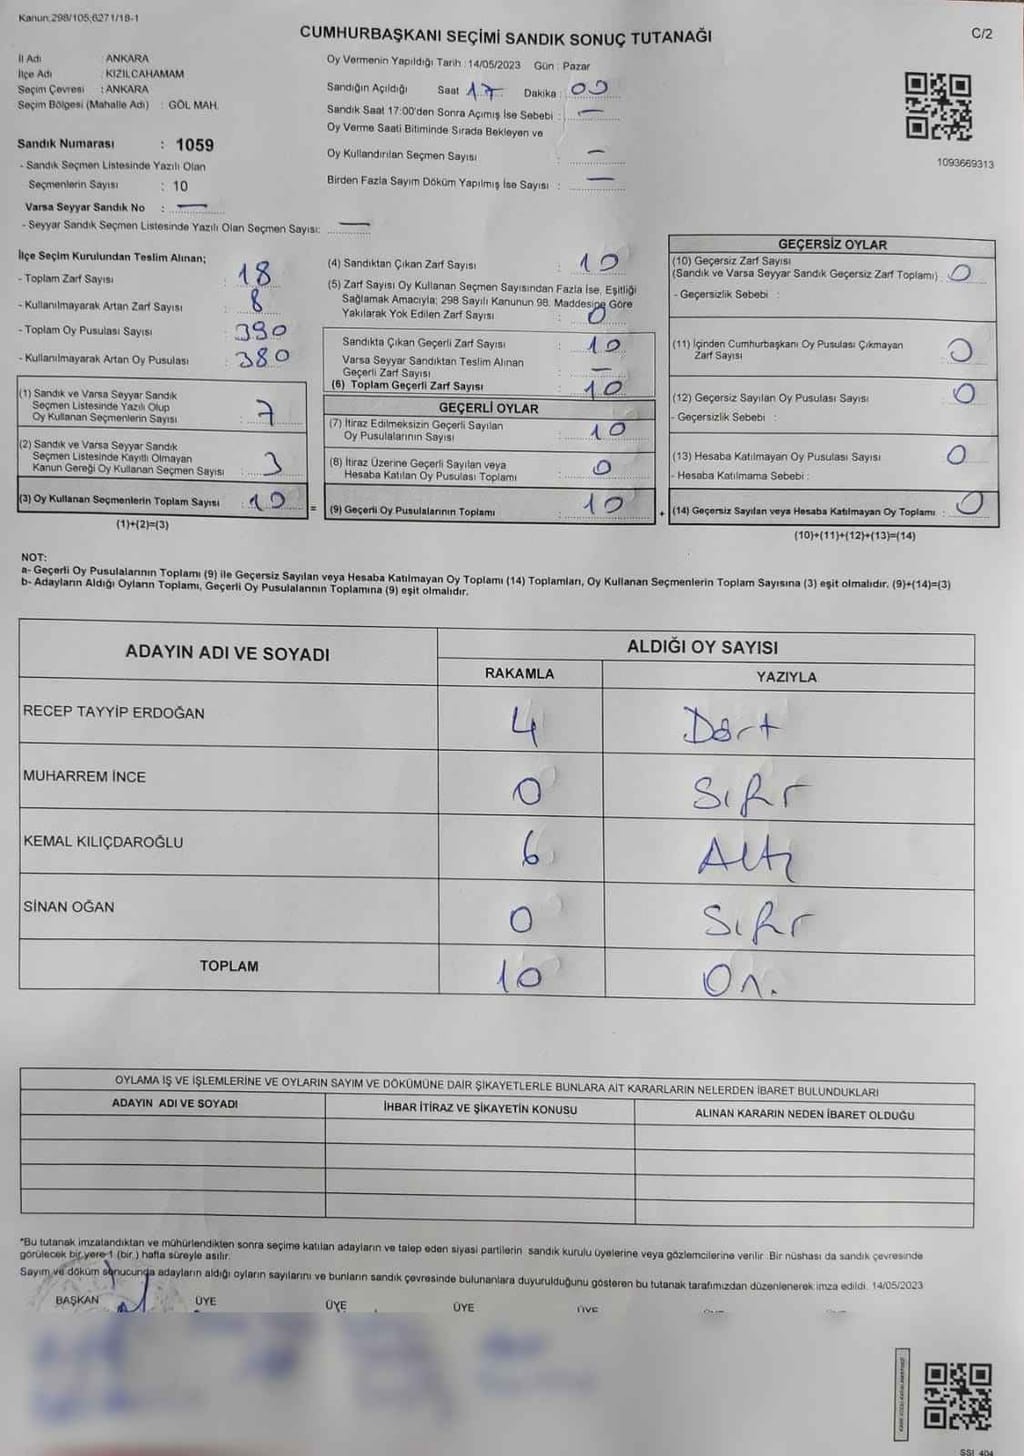 Kanun:298/105;6271/18-1
CUMHURBAŞKANI SEÇİMİ SANDIK SONUÇ TUTANAĞI
C/2
İl Adı : ANKARA
İlçe Adı : KIZILCAHAMAM
Seçim Çevresi : ANKARA
Seçim Bölgesi (Mahalle Adı) : GÖL MAH.
Sandık Numarası : 1059
- Sandık Seçmen Listesinde Yazılı Olan
Seçmenlerin Sayısı : 10
Varsa Seyyar Sandık No : —
- Seyyar Sandık Seçmen Listesinde Yazılı Olan Seçmen Sayısı: —
Oy Vermenin Yapıldığı Tarih : 14/05/2023 Gün : Pazar
Sandığın Açıldığı Saat 17 Dakika : 00
Sandık Saat 17:00'den Sonra Açımış İse Sebebi : —
Oy Verme Saati Bitiminde Sırada Bekleyen ve
Oy Kullandırılan Seçmen Sayısı : —
Birden Fazla Sayım Döküm Yapılmış İse Sayısı : —
1093669313
İlçe Seçim Kurulundan Teslim Alınan;
- Toplam Zarf Sayısı : 18
- Kullanılmayarak Artan Zarf Sayısı : 8
- Toplam Oy Pusulası Sayısı : 390
- Kullanılmayarak Artan Oy Pusulası : 380
(1) Sandık ve Varsa Seyyar Sandık
Seçmen Listesinde Yazılı Olup
Oy Kullanan Seçmenlerin Sayısı : 7
(2) Sandık ve Varsa Seyyar Sandık
Seçmen Listesinde Kayıtlı Olmayan
Kanun Gereği Oy Kullanan Seçmen Sayısı : 3
(3) Oy Kullanan Seçmenlerin Toplam Sayısı : 10
(1)+(2)=(3)
=
(4) Sandıktan Çıkan Zarf Sayısı : 10
(5) Zarf Sayısı Oy Kullanan Seçmen Sayısından Fazla İse, Eşitliği
Sağlamak Amacıyla; 298 Sayılı Kanunun 98. Maddesine Göre
Yakılarak Yok Edilen Zarf Sayısı : 0
Sandıkta Çıkan Geçerli Zarf Sayısı : 10
Varsa Seyyar Sandıktan Teslim Alınan
Geçerli Zarf Sayısı : —
(6) Toplam Geçerli Zarf Sayısı : 10
GEÇERLİ OYLAR
(7) İtiraz Edilmeksizin Geçerli Sayılan
Oy Pusulalarının Sayısı : 10
(8) İtiraz Üzerine Geçerli Sayılan veya
Hesaba Katılan Oy Pusulası Toplamı : 0
(9) Geçerli Oy Pusulalarının Toplamı : 10
+
GEÇERSİZ OYLAR
(10) Geçersiz Zarf Sayısı
(Sandık ve Varsa Seyyar Sandık Geçersiz Zarf Toplamı) : 0
- Geçersizlik Sebebi :
(11) İçinden Cumhurbaşkanı Oy Pusulası Çıkmayan
Zarf Sayısı : 0
(12) Geçersiz Sayılan Oy Pusulası Sayısı : 0
- Geçersizlik Sebebi :
(13) Hesaba Katılmayan Oy Pusulası Sayısı : 0
- Hesaba Katılmama Sebebi :
(14) Geçersiz Sayılan veya Hesaba Katılmayan Oy Toplamı : 0
(10)+(11)+(12)+(13)=(14)
NOT:
a- Geçerli Oy Pusulalarının Toplamı (9) ile Geçersiz Sayılan veya Hesaba Katılmayan Oy Toplamı (14) Toplamları, Oy Kullanan Seçmenlerin Toplam Sayısına (3) eşit olmalıdır. (9)+(14)=(3)
b- Adayların Aldığı Oyların Toplamı, Geçerli Oy Pusulalarının Toplamına (9) eşit olmalıdır.
ADAYIN ADI VE SOYADI
ALDIĞI OY SAYISI
RAKAMLA YAZIYLA
RECEP TAYYİP ERDOĞAN 4 Dört
MUHARREM İNCE 0 Sıfır
KEMAL KILIÇDAROĞLU 6 Altı
SİNAN OĞAN 0 Sıfır
TOPLAM 10 On.
OYLAMA İŞ VE İŞLEMLERİNE VE OYLARIN SAYIM VE DÖKÜMÜNE DAİR ŞİKAYETLERLE BUNLARA AİT KARARLARIN NELERDEN İBARET BULUNDUKLARI
ADAYIN ADI VE SOYADI
İHBAR İTİRAZ VE ŞİKAYETİN KONUSU
ALINAN KARARIN NEDEN İBARET OLDUĞU
*Bu tutanak imzalandıktan ve mühürlendikten sonra seçime katılan adayların ve talep eden siyasi partilerin sandık kurulu üyelerine veya gözlemcilerine verilir. Bir nüshası da sandık çevresinde
görülecek bir yere 1 (bir ) hafta süreyle asılır.
Sayım ve döküm sonucunda adayların aldığı oyların sayılarını ve bunların sandık çevresinde bulunanlara duyurulduğunu gösteren bu tutanak tarafımızdan düzenlenerek imza edildi. 14/05/2023
BAŞKAN ÜYE ÜYE ÜYE ÜYE
SSI 404